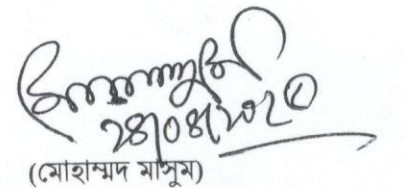 ২৪/০৪/২০২৫
(মোহাম্মদ মাসুম)